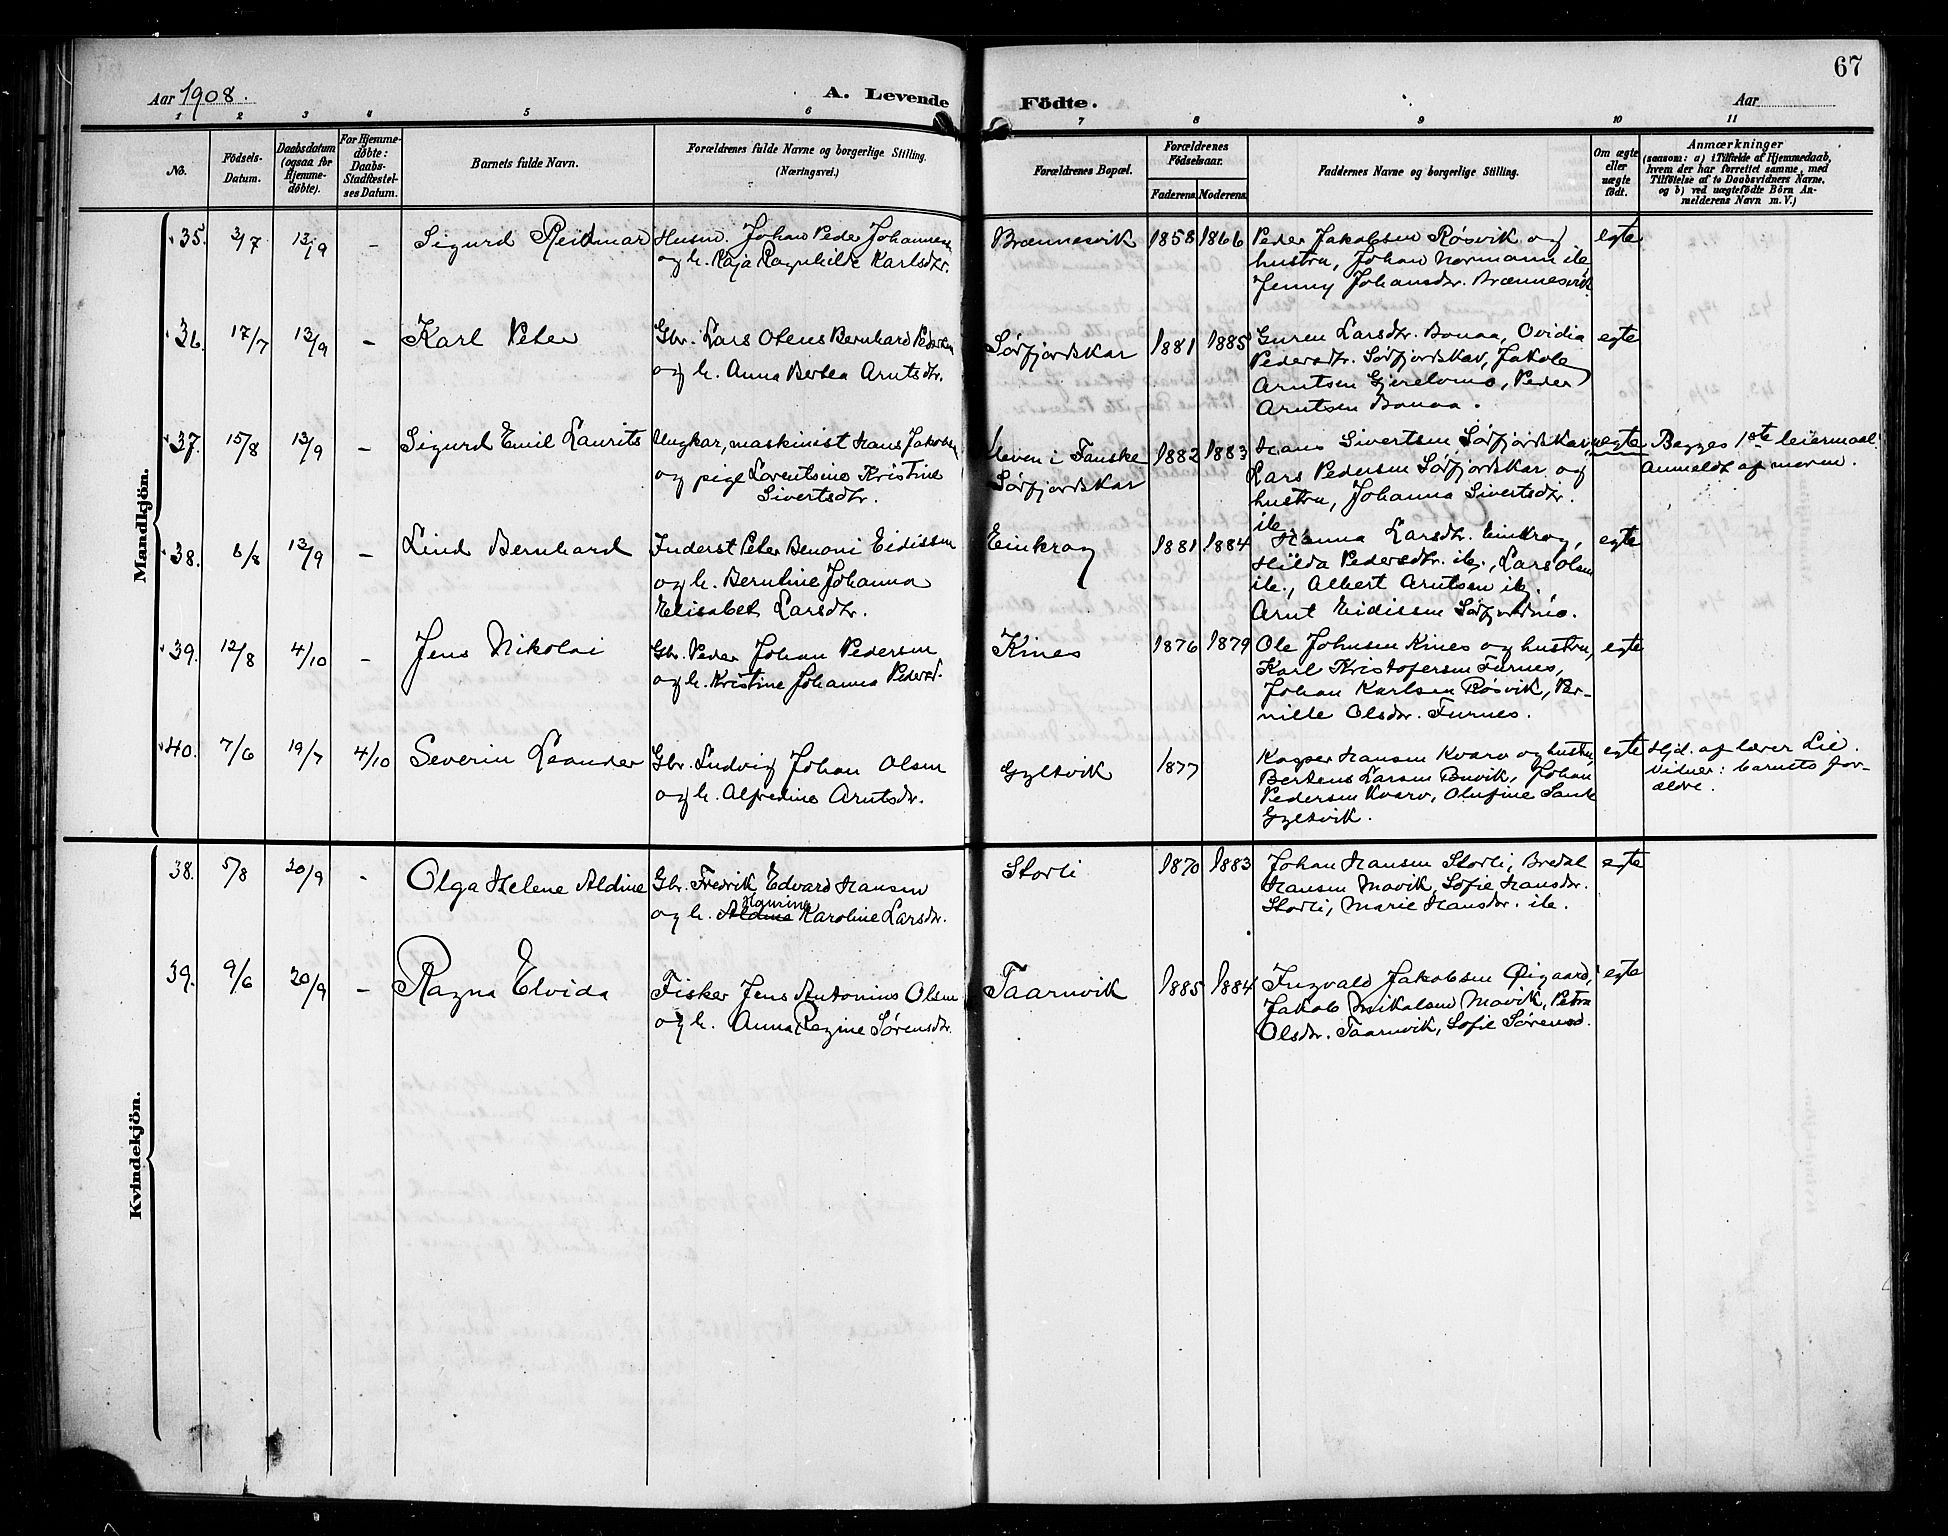 67
Aar 1908.
A. Levende Födte.
Aar
1 2 3 4 5 6 7 8 9 10 11
No.
Födsels-Datum.
Daabsdatum (ogsaa for Hjemme-döbte).
For Hjemme-döbte: Daabs-Stadfæstel-ses Datum.
Barnets fulde Navn.
Forældrenes fulde Navne og borgerlige Stilling. (Næringsvei.)
Forældrenes Bopæl.
Forældrenes Födselsaar.
Faderens. Moderens.
Faddernes Navne og borgerlige Stilling.
Om ægte eller uægte födt.
Anmærkninger
(saasom: a) i Tilfælde af Hjemmedaab,
hvem der har forrettet samme, med
Tilföielse af to Daabsvidners Navne,
og b) ved uægtefödte Börn An-
melderens Navn m. V.)
Mandkjön.
35. 3/7 13/9 - Sigurd Reidmar
Husm. Johan Peder Johannes
og h. Kaja Ragnhilde Karlsdtr.
Brænnesvik 1858 1866
Peder Jakobsen Røsvik og
hustru, Johan Normann ib
Jenny Johansdr. Brænnesvik
egte
36. 17/7 13/9 - Karl Peter
Gbr. Lars Olens Bernhard Pedersen
og h. Anna Bertea Arntsdtr.
Sørfjordskar 1881 1885
Guren Larsdtr. Bonaa, Ovidia
Pedersdtr. Sørfjordskar, Jakob
Arntsen Gjerelvmo, Peder
Arntsen Bonaa.
egte
37. 15/8 13/9 - Sigurd Emil Laurits
Ungkar, maskinist Hans Jakobsen
og pige Lorentsine Kristine
Sivertsdtr.
Leven i Fauske
Sørfjordskar
1882 1883
Hans Sivertsen Sørfjordskar,
Lars Pedersen Sørfjordskar og
hustru, Johanna Sivertsdtr.
ib.
uegte
Begges 1ste leiermaal
Anmeldt af moren.
38. 6/8 13/9 - Lind Bernhard
Inderst Peter Benoni Eidissen
og h. Berntine Johanna
Elisabet Larsdtr.
Einkrog 1881 1884
Hanna Larsdtr. Einkrog,
Hilda Pedersdtr. ib., Lars Olsen
ib., Albert Arntsen ib.
Arnt Eidissen Sørfjordmo.
egte
39. 12/8 4/10 - Jens Nikolai
Gbr. Peder Johan Pedersen
og h. Kristine Johanna Pedersd.
Kines 1876 1879
Ole Johnsen Kines og hustru,
Karl Kristofersen Furnes,
Johan Karlsen Røsvik, Per-
nille Olsdr. Furnes.
egte
40. 7/6 19/7 4/10 Severin Leander
Gbr. Ludvig Johan Olsen
og h. Alfredine Arntsdr.
Gyltvik 1877
Kasper Hansen Kvarv og hustru
Bertens Larsen Buvik, Johan
Pedersen Kvarv, Olufine Sank
Gyltvik.
egte
Hjd. af lærer Lie.
Vidner: barnets for-
ældre.
Kvindekjön.
38. 5/8 20/9 - Olga Helene Aldine
Gbr. Fredrik Edvard Hansen
og h. Aldine Karoline Larsdr.
Storli 1870 1883
Johan Hansen Storli, Bredal
Hansen Movik, Sofie Hansdr.
Storli, Marie Hansdr. ib.
egte
39. 9/6 20/9 - Ragna Elvida
Fisker Jens Antonius Olsen
og h. Anna Regine Sørensdr.
Taarnvik 1885 1884
Ingvald Jakobsen Øigaard,
Jakob Mikalsen Movik, Petra
Olsdtr. Taarnvik, Sofie Sørensd.
egte